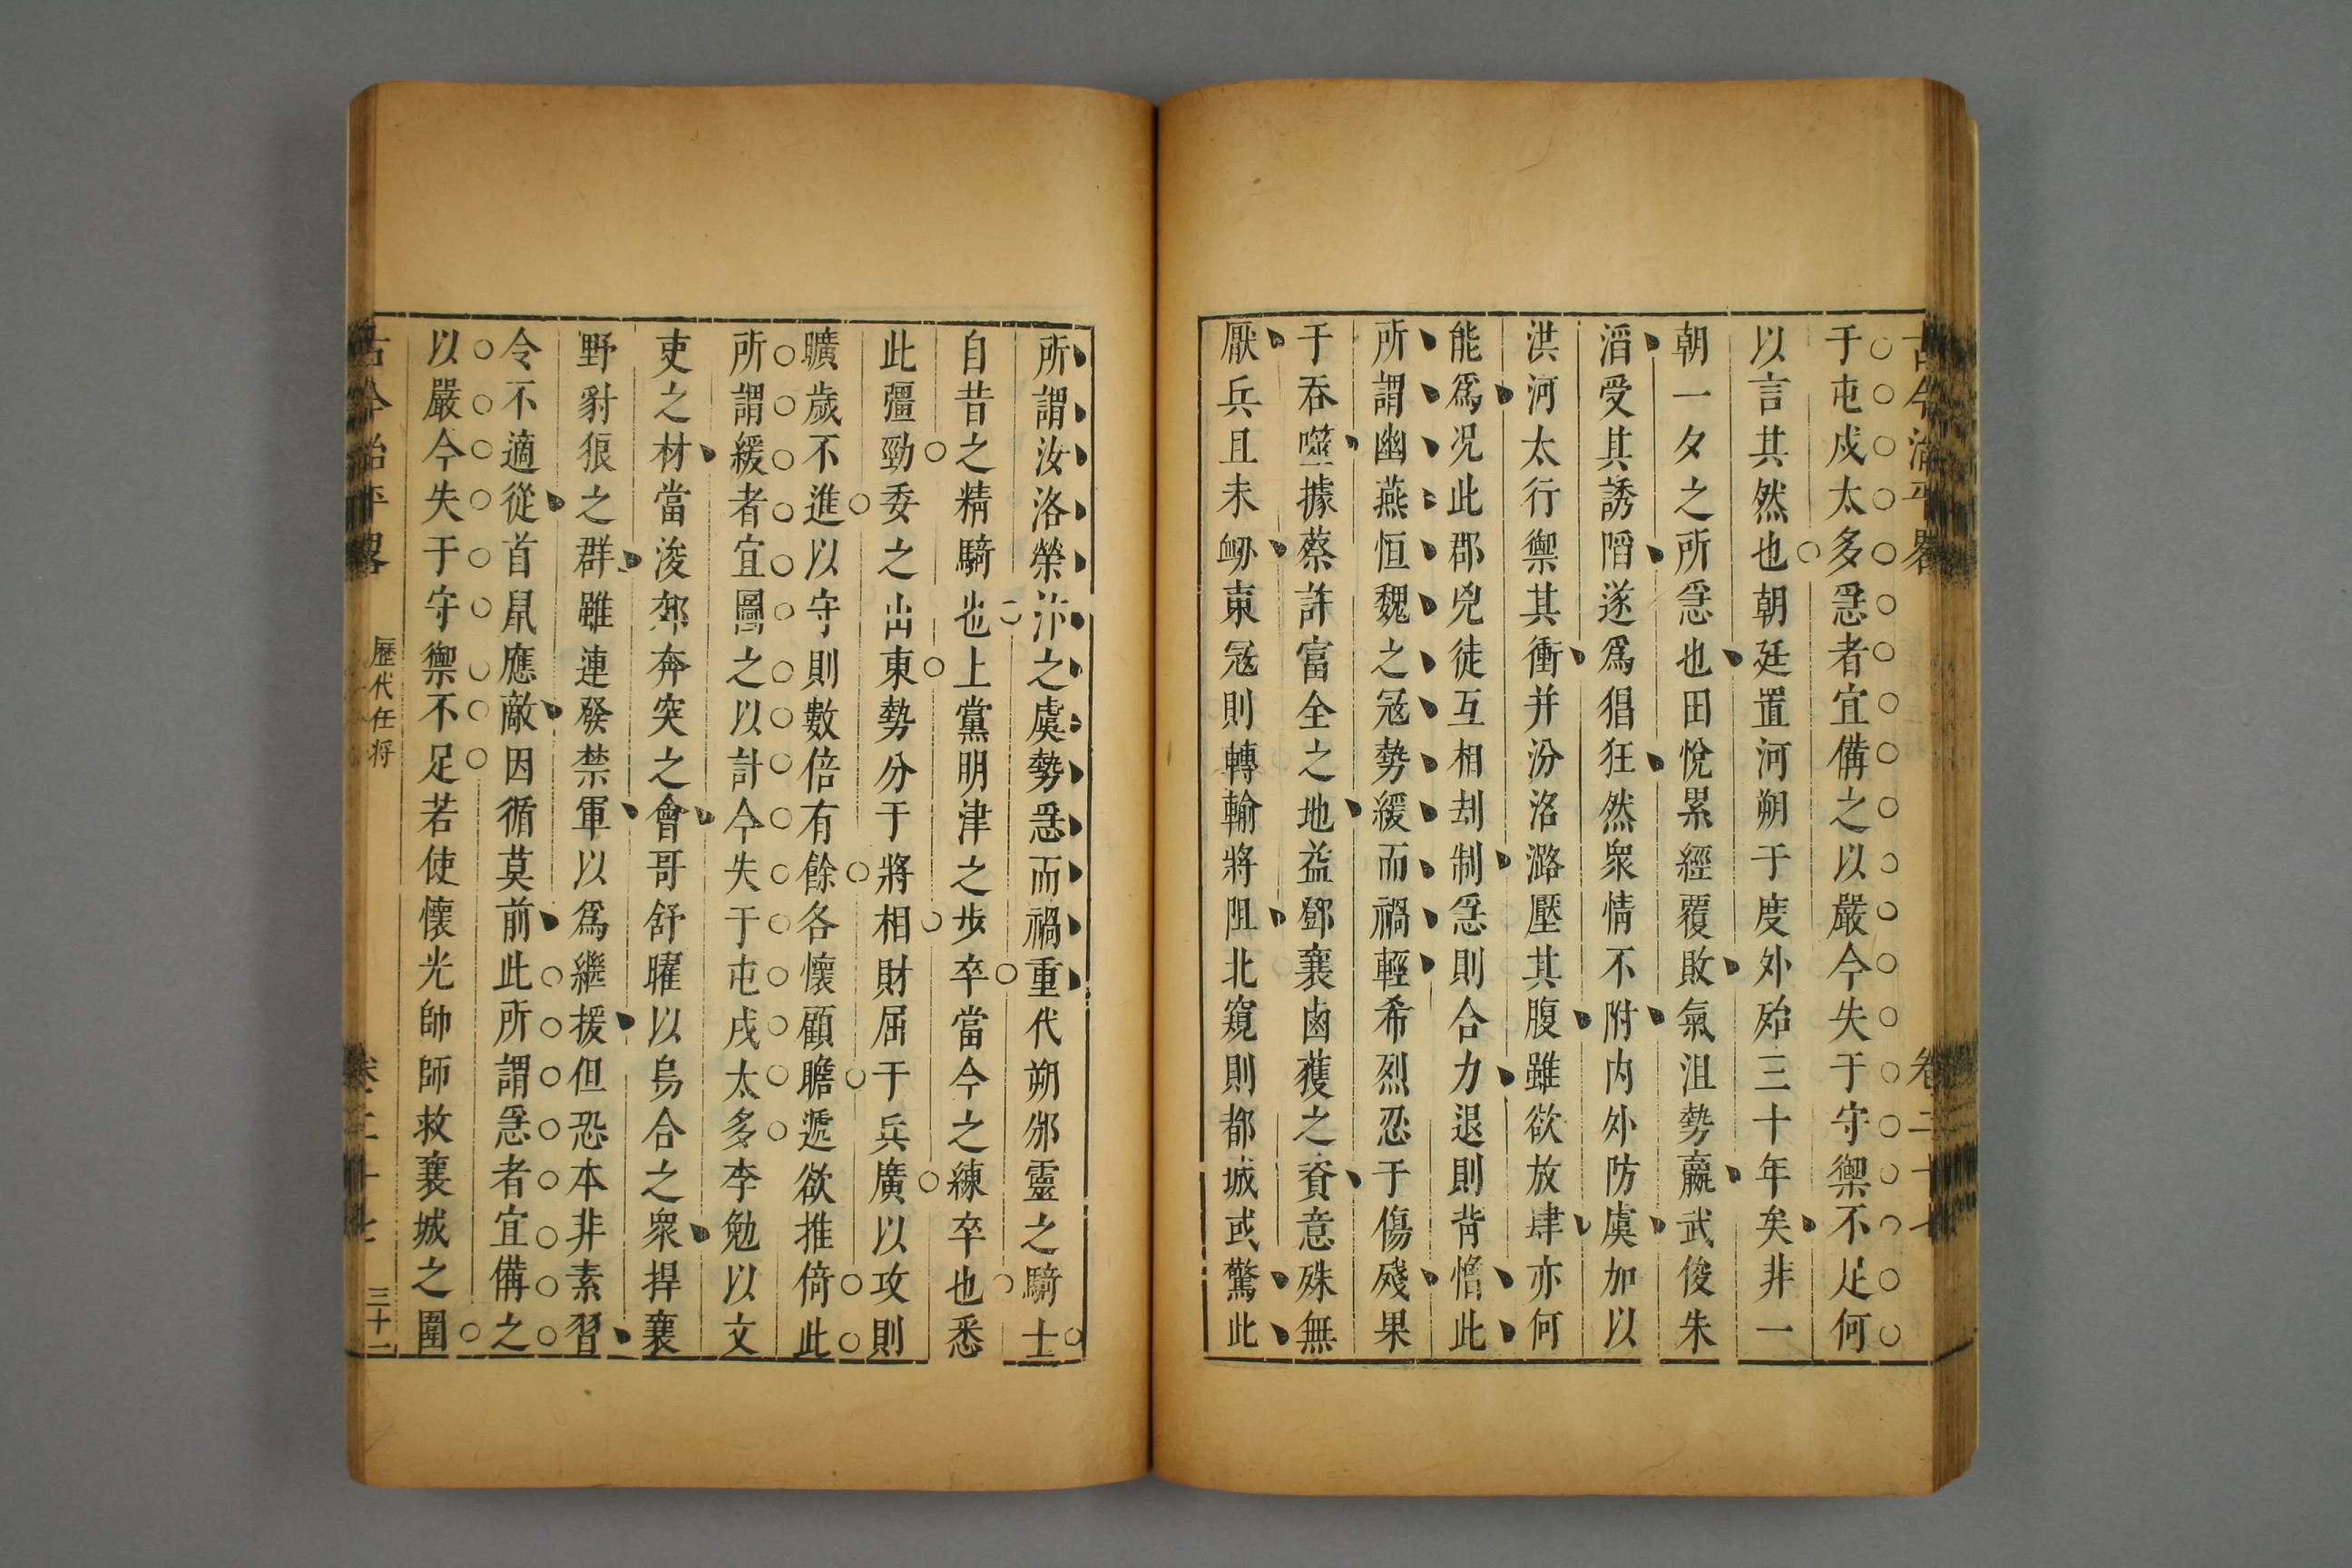 古今治平畧
卷二十七
于屯戍太多急者宜備之以嚴今失于守禦不足何
以言其然也朝廷置河朔于度外殆三十年矣非一
朝一夕之所急也田悅累經覆敗氣沮勢羸武俊朱
滔受其誘䧟遂爲猖狂然衆情不附内外防虞加以
洪河太行禦其衝并汾洺潞壓其腹雖欲放肆亦何
能爲况此郡兇徒互相刦制急則合力退則背憎此
所謂幽燕恒魏之冦勢緩而禍輕希烈忍于傷殘果
于吞噬據蔡許富全之地益鄧襄鹵獲之資意殊無
厭兵且未衂東冦則轉輸將阻北窺則都城或驚此
所謂汝洛滎汴之虞勢急而禍重代朔邠靈之騎士
自昔之精騎也上黨明津之步卒當今之練卒也悉
此彊勁委之出東勢分于將相財屈于兵廣以攻則
曠歲不進以守則數倍有餘各懷顧瞻遞欲推倚此
所謂緩者宜圖之以計今失于屯戍太多李勉以文
吏之材當浚郊奔突之會哥舒曜以烏合之衆捍襄
野豺狼之群雖連發禁軍以爲繼援但恐本非素習
令不適從首鼠應敵因循莫前此所謂急者宜備之
以嚴今失于守禦不足若使懷光帥師救襄城之圍
古今治平畧
歷代任將
卷二十七
三十一